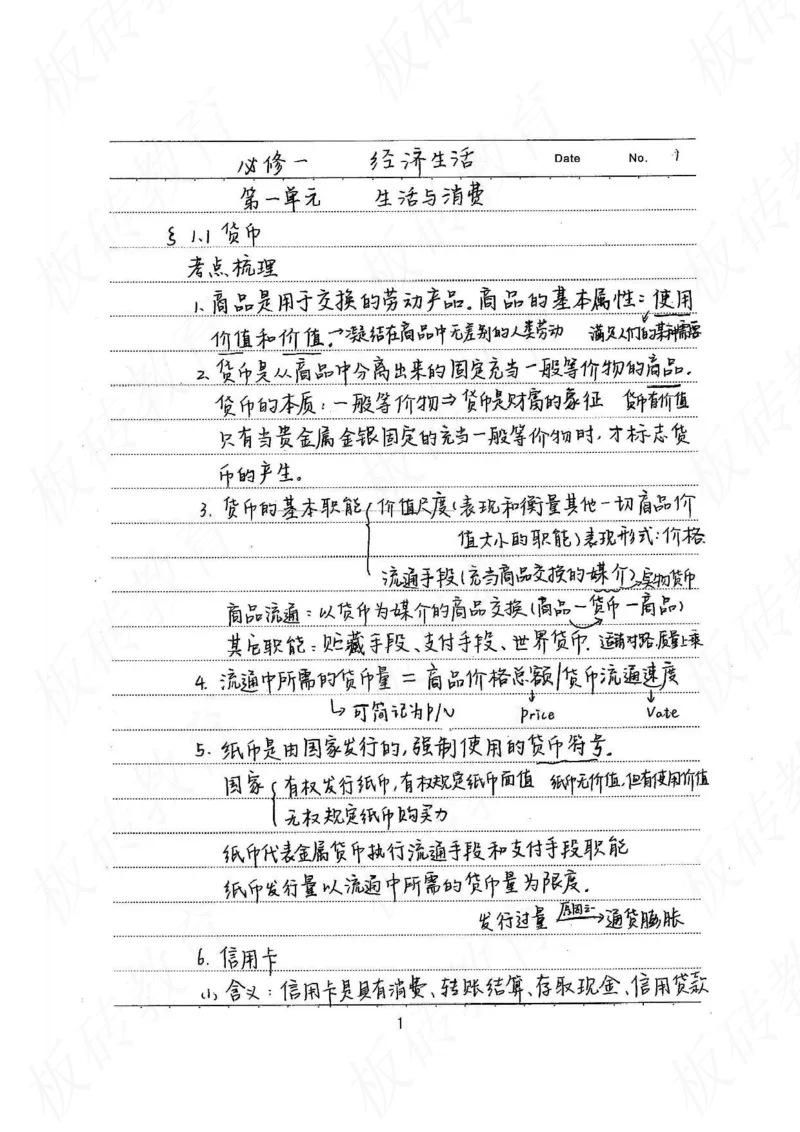 必修一 经济生活 Date No. 1
第一单元 生活与消费
§ 1.1 货币
考点梳理
1. 商品是用于交换的劳动产品。商品的基本属性：使用
价值和价值。→凝结在商品中无差别的人类劳动 满足人们的某种需要
2. 货币是从商品中分离出来的固定充当一般等价物的商品。
货币的本质：一般等价物⇒货币是财富的象征 货币有价值
只有当贵金属金银固定的充当一般等价物时，才标志货
币的产生。
3. 货币的基本职能{价值尺度(表现和衡量其他一切商品价
值大小的职能)表现形式：价格
流通手段(充当商品交换的媒介)实物货币
商品流通：以货币为媒介的商品交换(商品—货币—商品)
其它职能：贮藏手段、支付手段、世界货币.
4. 流通中所需的货币量 = 商品价格总额/货币流通速度
↳可简记为P/V Price Vate
5. 纸币是由国家发行的，强制使用的货币符号。
国家{有权发行纸币，有权规定纸币面值 纸币无价值，但有使用价值
无权规定纸币购买力
纸币代表金属货币执行流通手段和支付手段职能
纸币发行量以流通中所需的货币量为限度。
发行过量 原因之一→通货膨胀
6. 信用卡
(1) 含义：信用卡是具有消费、转账结算、存取现金、信用贷款
1
板砖教育